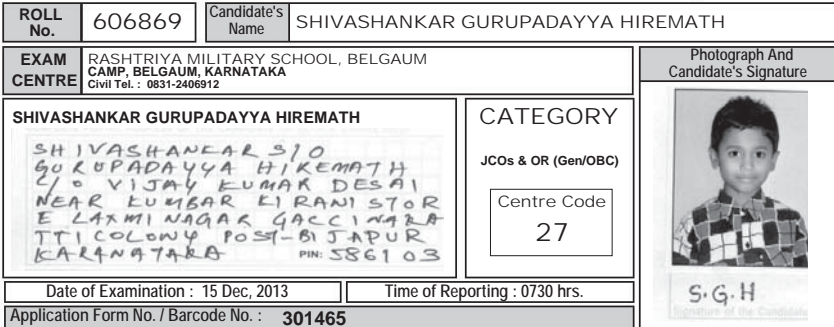 ROLL No. 606869 Candidate's Name SHIVASHANKAR GURUPADAYYA HIREMATH
EXAM CENTRE
RASHTRIYA MILITARY SCHOOL, BELGAUM
CAMP, BELGAUM, KARNATAKA
Civil Tel. : 0831-2406912
Photograph And
Candidate's Signature
SHIVASHANKAR GURUPADAYYA HIREMATH
SHIVASHANKAR S/O
GURUPADAYYA HIREMATH
C/o VIJAY KUMAR DESAI
NEAR KUMBAR KIRANI STOR
E LAXMI NAGAR GACCINAKA
TTI COLONY POST-BIJAPUR
KARANATAKA PIN: 586103
CATEGORY
JCOs & OR (Gen/OBC)
Centre Code
27
S.G.H
Signature of the Candidate
Date of Examination : 15 Dec, 2013
Time of Reporting : 0730 hrs.
Application Form No. / Barcode No. : 301465